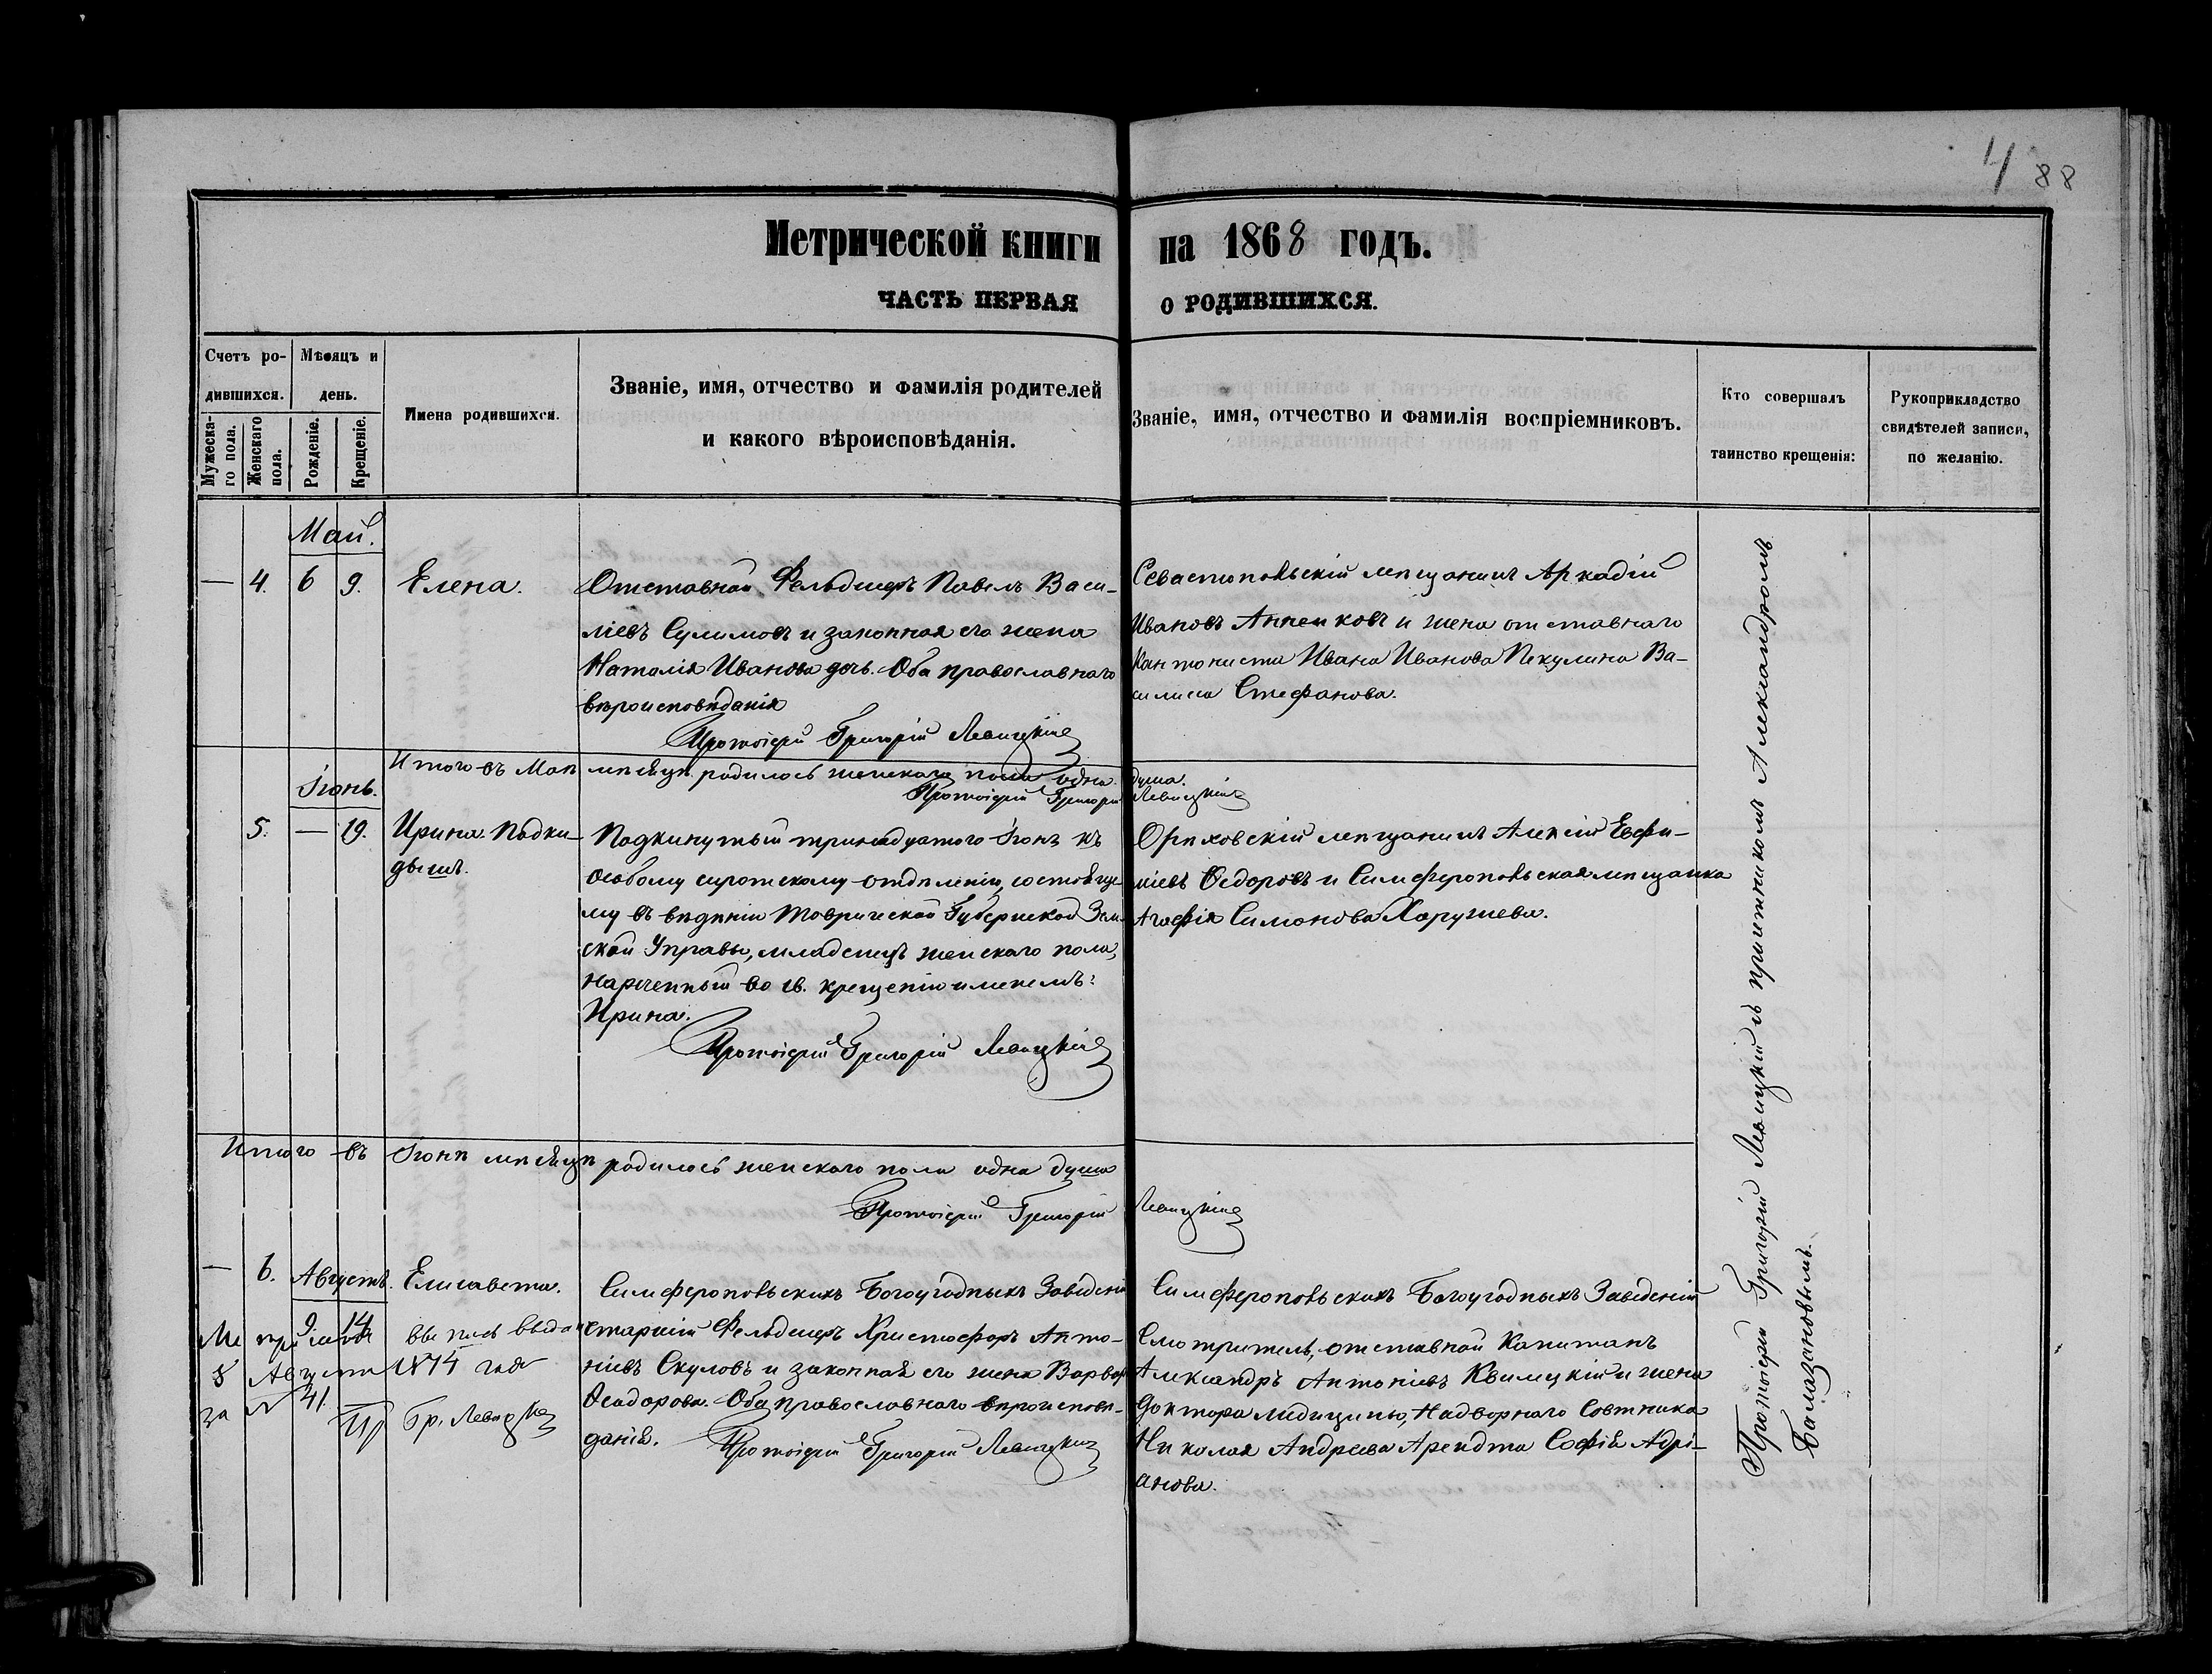 4 88
Метрической книги на 1868 годъ.
ЧАСТЬ ПЕРВАЯ О РОДИВШИХСЯ.
Счетъ ро-
дившихся.
Мѣсяцъ и
день.
Мужеска-
го пола.
Женскаго
пола.
Рожденіе.
Крещеніе.
Имена родившихся.
Званіе, имя, отчество и фамилія родителей
и какого вѣроисповѣданія.
Званіе, имя, отчество и фамилія воспріемниковъ.
Кто совершалъ
таинство крещенія:
Рукоприкладство
свидѣтелей записи,
по желанію.
Май.
— 4. 6 9. Елена.
Отставной Фельдшеръ Павелъ Васи-
ліевъ Сулимовъ и законная его жена
Наталія Иванова дочь. Оба православнаго
вѣроисповѣданія
Протоіерей Григорій Левицкій
Севастопольскій мѣщанинъ Аркадій
Ивановъ Анненковъ и жена отставнаго
Кантониста Ивана Иванова Пекулина Ва-
силиса Стефанова.
Итого въ Маѣ мѣсяцѣ родилось женскаго пола одна душа.
Протоіерей Григорій Левицкій
Іюнь.
5. — 19. Ирина. Подки-
дышъ.
Подкинутый тринадцатого Іюня къ
Особому сиротскому отдѣленію, состояще-
му въ вѣдѣніи Таврической Губернской Зем-
ской Управы, младенецъ женскаго пола,
нареченный во св. крещеніи именемъ:
Ирина.
Протоіерей Григорій Левицкій
Орѣховскій мѣщанинъ Алексій Евфи-
міевъ Ѳедоровъ и Симферопольская мѣщанка
Агафія Симонова Харужева.
Итого въ Іюнѣ мѣсяцѣ родилось женскаго пола одна душа
Протоіерей Григорій Левицкій
— 6. Августъ. Елисавета.
9 14
Симферопольскихъ Богоугодныхъ Заведеній
старшій Фельдшеръ Христофоръ Анто-
ніевъ Скуловъ и законная его жена Варвара
Ѳеодорова. Оба православнаго вѣроисповѣ-
данія. Протоіерей Григорій Левицкій
Симферопольскихъ Богоугодныхъ Заведеній
Смотритель, отставной Капитанъ
Александръ Антоніевъ Квицкій и жена
Доктора медицины, Надворнаго Совѣтника
Николая Андреева Арендта Софія Адрі-
анова.
выпись выдана
8 Августа 1874 года
за № 41.
Пр. Гр. Левицкій
Протоіерей Григорій Левицкій съ причетникомъ Александромъ
Балазановымъ.